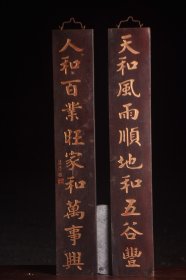 天和風雨順地和五谷豐
人和百業旺家和萬事興